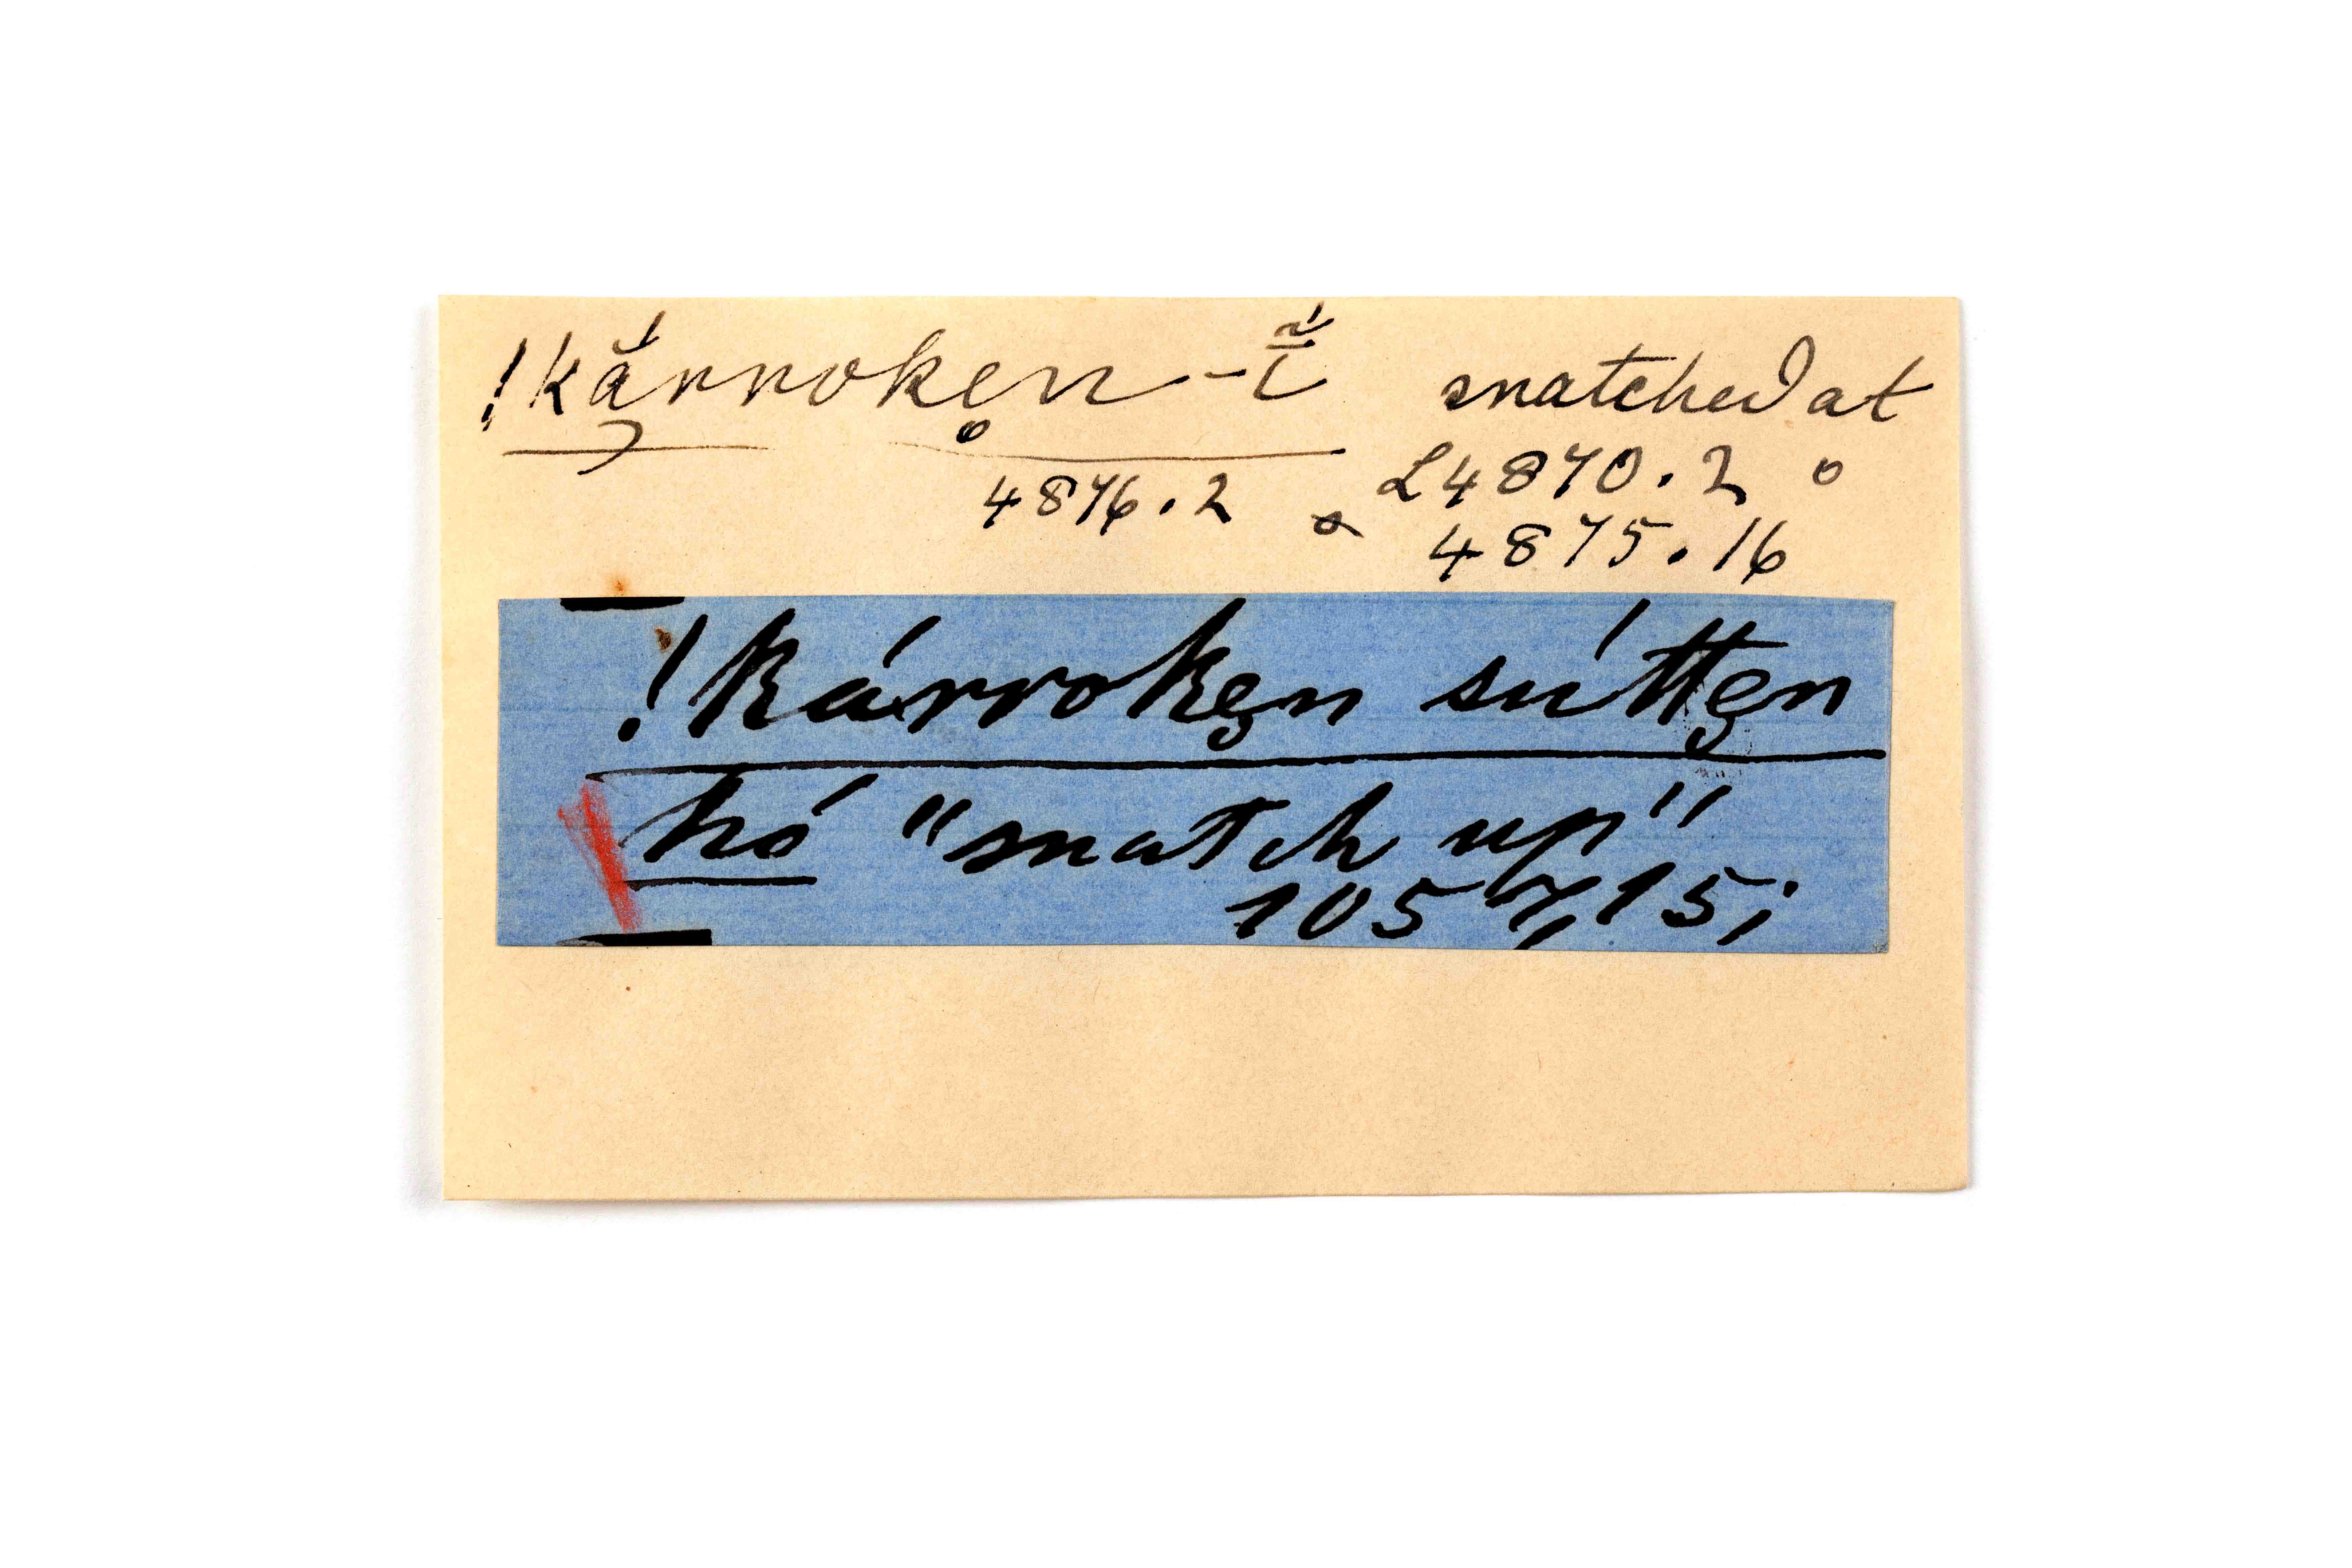 !kā̆́rroken̥-ī̃́ snatched at
4876.2 L4870.2 o
& 4875.16
!kárroken sútten
hó "snatch up"
1057,15;